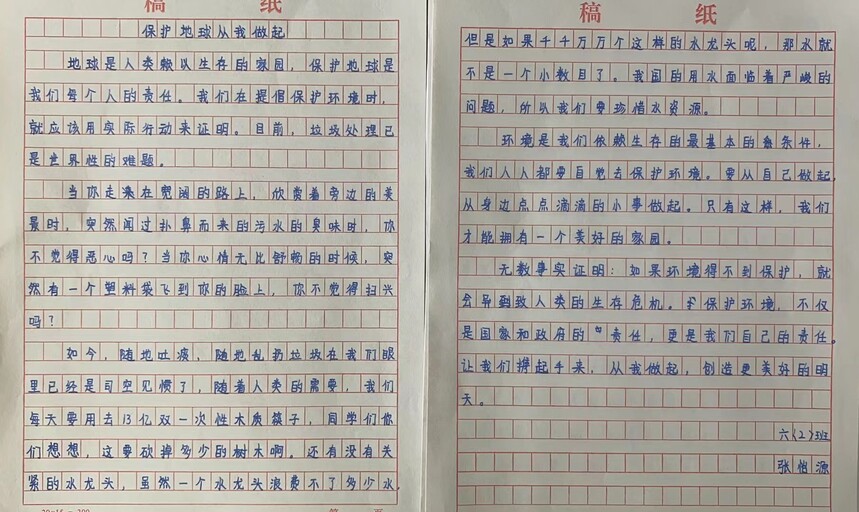 稿 纸
保护地球从我做起
地球是人类赖以生存的家园，保护地球是
我们每个人的责任。我们在提倡保护环境时，
就应该用实际行动来证明。目前，垃圾处理已
是世界性的难题。
当你走来在宽阔的路上，欣赏着旁边的美
景时，突然闻过扑鼻而来的污水的臭味时，你
不觉得恶心吗？当你心情无比舒畅的时候，突
然有一个塑料袋飞到你的脸上，你不觉得扫兴
吗？
如今，随地吐痰、随地乱扔垃圾在我们眼
里已经是司空见惯了，随着人类的需要，我们
每天要用去13亿双一次性木质筷子，同学们你
们想想，这要砍掉多少的树木啊。还有没有关
紧的水龙头，虽然一个水龙头浪费不了多少水，
稿 纸
但是如果千千万万个这样的水龙头呢，那水就
不是一个小数目了。我国的用水面临着严峻的
问题，所以我们要珍惜水资源。
环境是我们依赖生存的最基本的条件，
我们人人都要自觉去保护环境。要从自己做起，
从身边点点滴滴的小事做起。只有这样，我们
才能拥有一个美好的家园。
无数事实证明：如果环境得不到保护，就
会导致人类的生存危机。保护环境，不仅
是国家和政府的责任，更是我们自己的责任。
让我们携起手来，从我做起，创造更美好的明
天。
六（2）班
张怡源